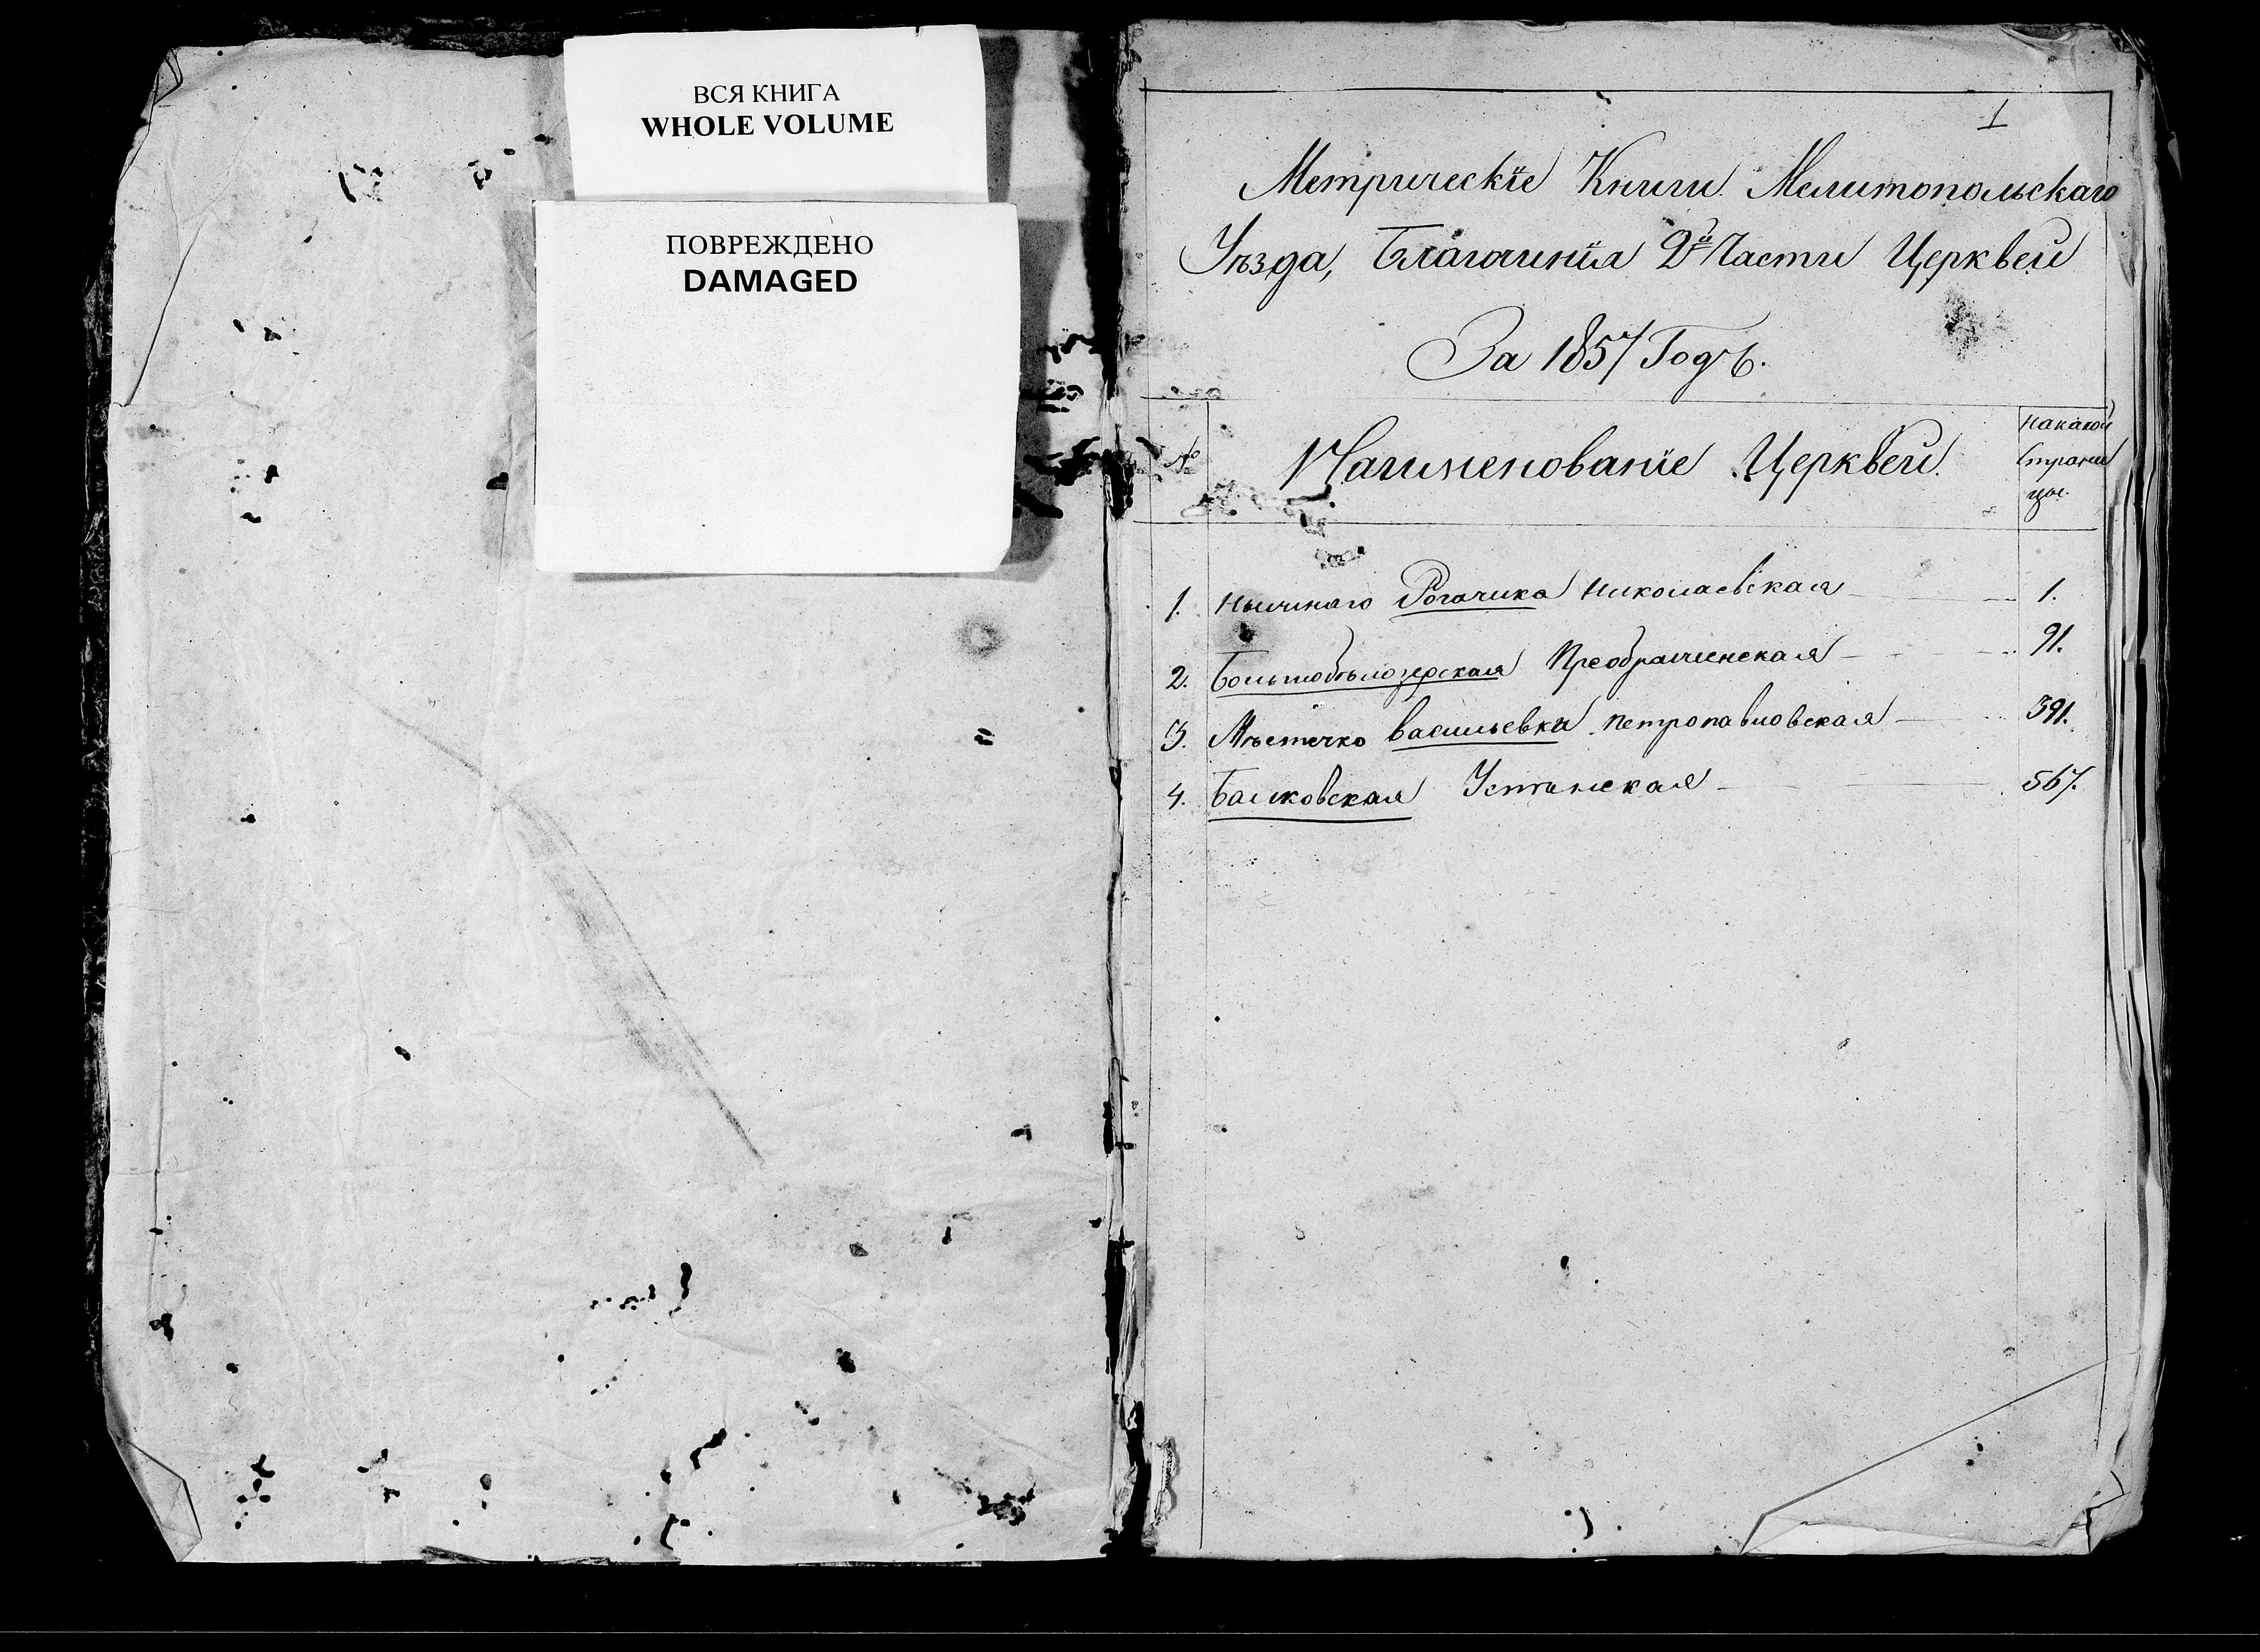 ВСЯ КНИГА
WHOLE VOLUME
ПОВРЕЖДЕНО
DAMAGED
1
Метрическіе Книги Мелитопольскаго
Уѣзда, Благочинія 2й Части Церквей
За 1857 Годъ.
№ Наименованіе Церквей. На какой страницы.
1. Нижнаго Рогачика Николаевская 1.
2. Большобѣлозерская Преображенская 91.
3. Мѣстечко Васильевка Петропавловская 391.
4. Балковская Успѣнская 567.